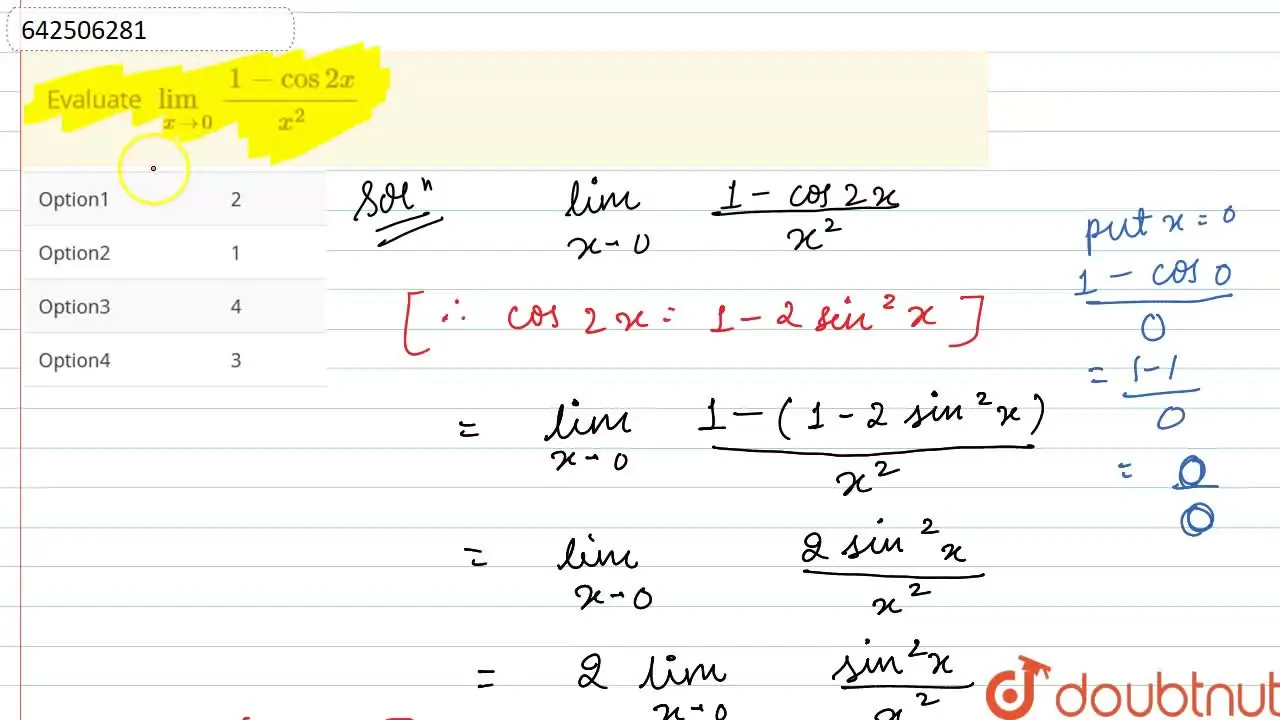 642506281
Evaluate lim x→0 1 − cos 2x / x²
Option1 2
Option2 1
Option3 4
Option4 3
Solⁿ lim x→0 1 - cos 2x / x²
[∴ cos 2x = 1 - 2 sin² x]
= lim x→0 1 - (1 - 2 sin² x) / x²
= lim x→0 2 sin² x / x²
= 2 lim x→0 sin² x / x²
put x = 0
1 - cos 0 / 0
= 1-1 / 0
= 0 / 0
doubtnut